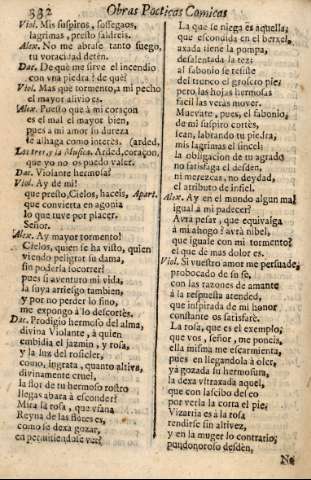 332 Obras Poeticas Comicas
Viol. Mis suspiros, sossegaos,
lagrimas, presto saldreis.
Alex. No me abrase tanto fuego,
tu voracidad detèn.
Dar. De què me sirve el incendio
con vna piedra? de què?
Viol. Mas que tormento, a mi pecho
el mayor alivio es.
Alex. Puesto que à mi coraçon
es el mal el mayor bien,
pues à mi amor su dureza
le alhaga como interès. (arded,
Los tres, y la Musica. Arded, coraçon,
que yo no os puedo valer.
Dar. Violante hermosa?
Viol. Ay de mi!
que presto, Cielos, haceis, Apart.
que convierta en agonia
lo que tuve por placer.
Señor.
Alex. Ay mayor tormento!
Cielos, quien se ha visto, quien
viendo peligrar su dama,
sin poderla socorrer!
pues si aventuro mi vida,
la suya arriesgo tambien,
y por no perder lo fino,
me expongo à lo descortès.
Dar. Prodigio hermoso del alma,
divina Violante, à quien
embidia el jazmin, y rosa,
y la luz del rosicler,
como, ingrata, quanto altiva,
divinamente cruel,
la flor de tu hermoso rostro
llegas abara à esconder?
Mira la rosa, que vfana
Reyna de las flores es,
como se dexa gozar,
en permitiendose ver?
La que se niega es aquella,
que escondida en el bergel,
axada tiene la pompa,
desalentada la tez:
al fabonio se resiste
del tronco el grossero pie;
pero las hojas hermosas
facil las veràs mover.
Muevate, pues, el fabonio,
de mi suspiro cortès,
sean, labrando tu piedra,
mis lagrimas el sincel:
la obligacion de tu agrado
no satisfaga el desdèn,
ni merezcas, no deydad,
el atributo de infiel.
Alex. Ay en el mundo algun mal
igual à mi padecer?
Avrà pesar, que equivalga
à mi ahogo? avrà nibel,
que iguale con mi tormento?
èl que de mas dolor es.
Viol. Si vuestro amor me persuade,
probocado de su fè,
con las razones de amante
à la respuesta atended,
que inspirada de mi honor
constante os satisfarè.
La rosa, que es el exemplo,
que vos, señor, me poneis,
ella misma se escarmienta,
pues en llegandola à oler,
yà gozada su hermosura,
la dexa vltraxada aquel,
que con lascibo deseo
por verla la corta el pie.
Vizarria es à la rosa
rendirse sin altivez,
y en la muger lo contrario;
pundonoroso desdèn,
No